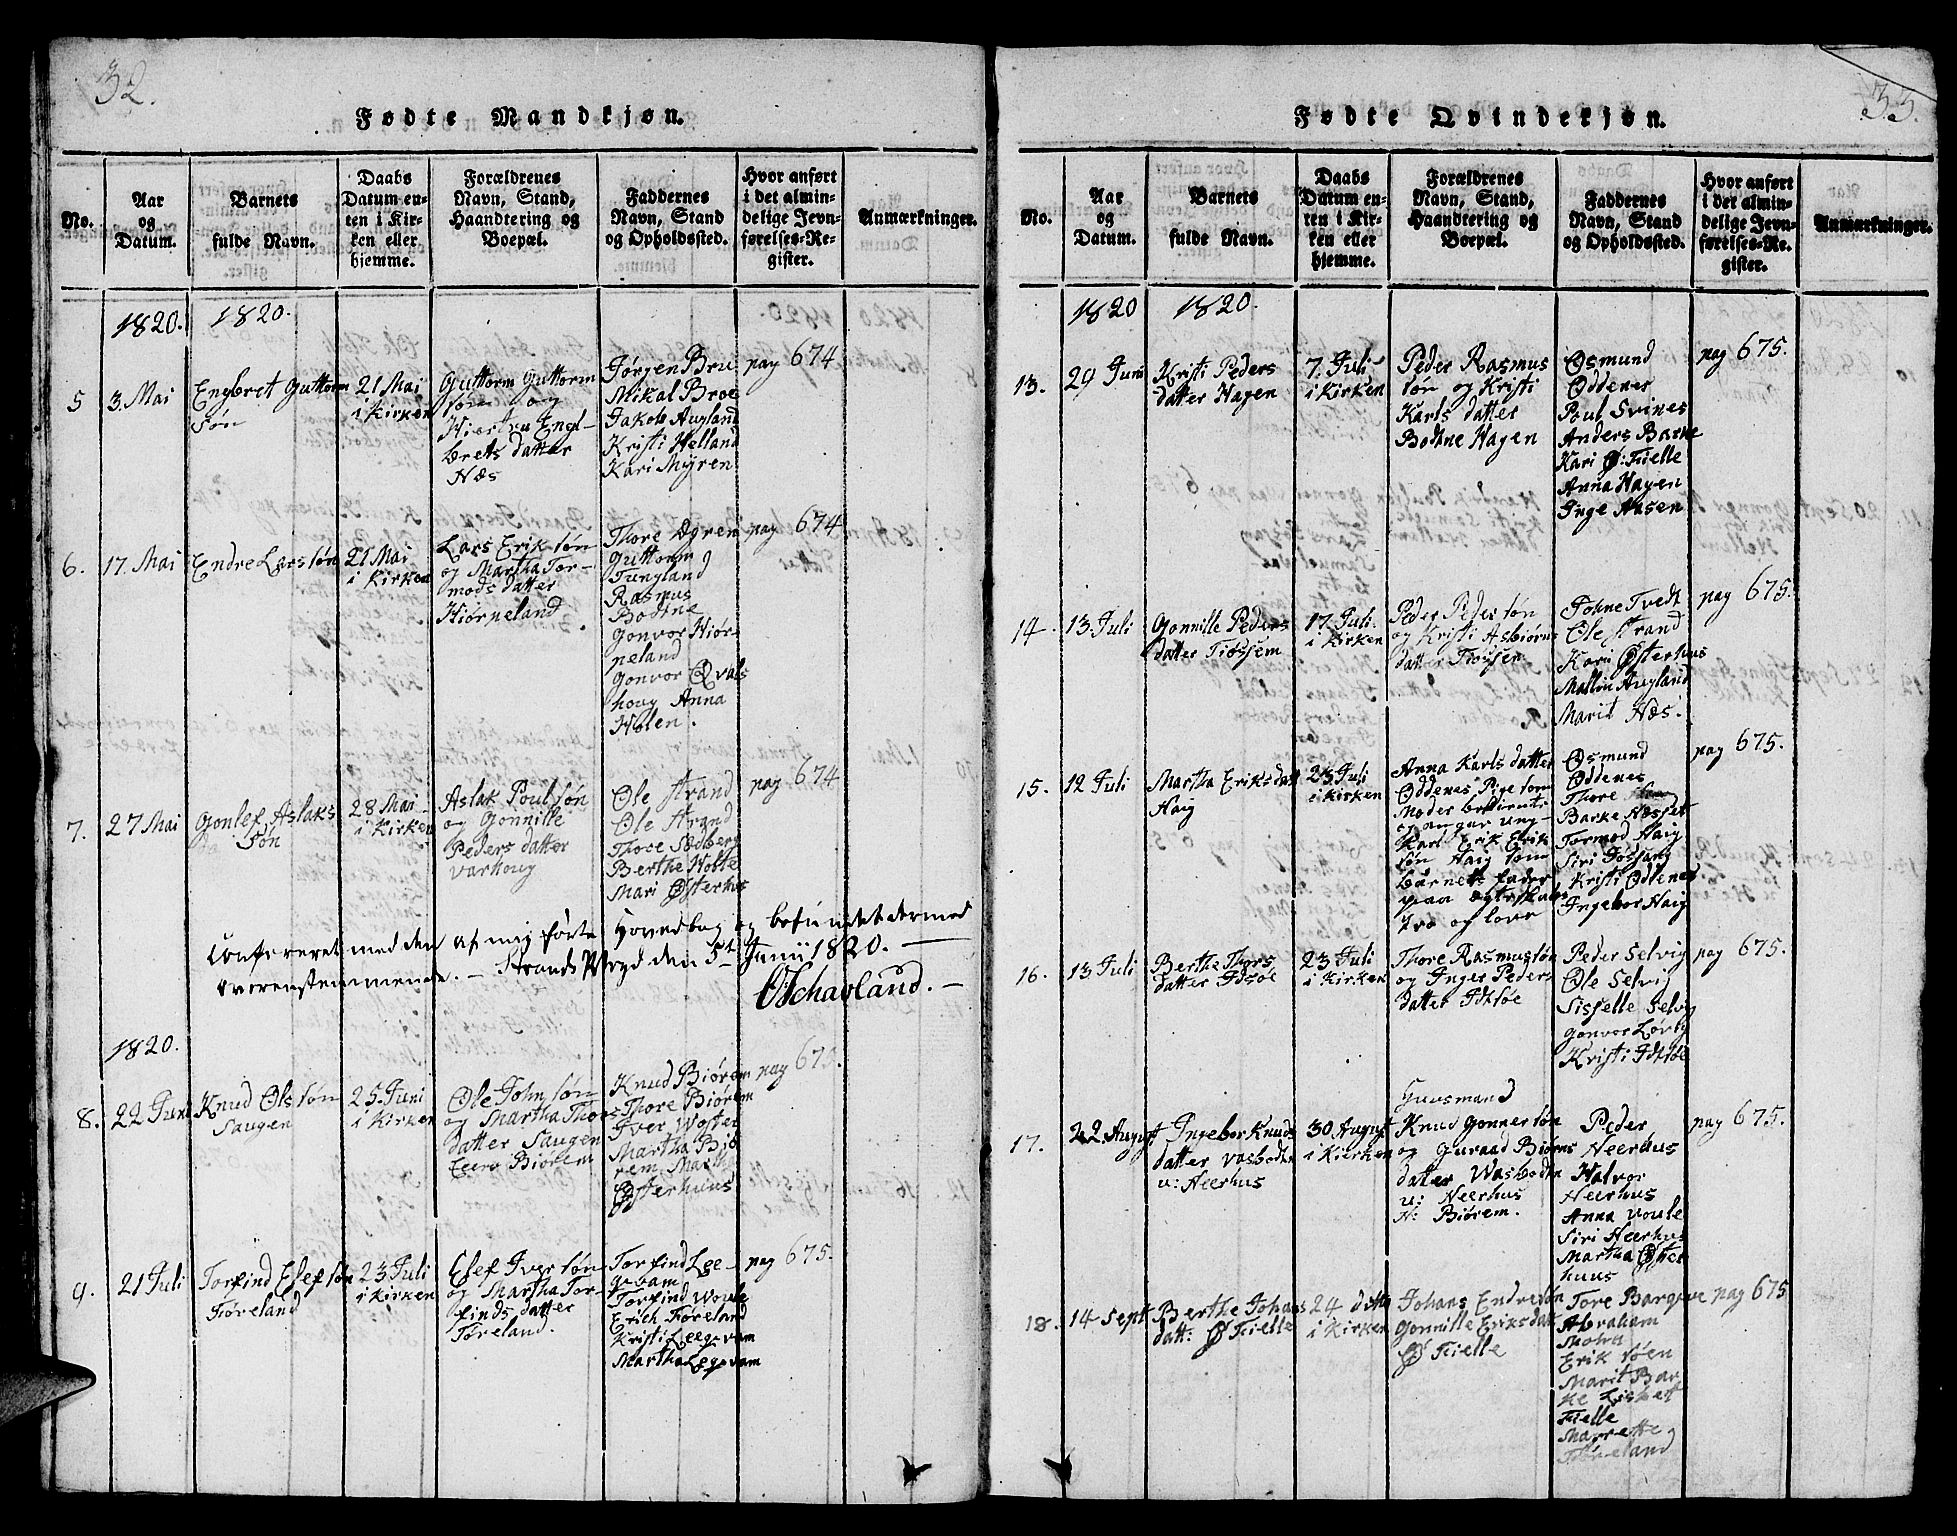 32.
Fødte Mandkjøn.
No.
Aar
og
Datum.
Barnets
fulde Navn.
Daabs
Datum en-
ten i Kir-
ken eller
hjemme.
Forældrenes
Navn, Stand,
Haandtering og
Boepæl.
Faddernes
Navn, Stand
og Opholdssted.
Hvor anført
i det almin-
delige Jevn-
førelses-Re-
gister.
Anmærkninger.
1820.
1820.
5
3. Mai
Engbret Guttorm
Søn
21 Mai
i Kirken
Guttorm Guttorm
søn og
Hiertru Engl-
brets datter
Næs
Jørgen Bru
Mikal Broe
Jakob Augland
Kristi Helland
Kari Myren
pag 674
6.
17. Mai
Endre Larssøn
21 Mai
i Kirken
Lars Erik søn
og Martha Tor-
mods datter
Hiørpeland
Thore Øgren
Guttorm
Tungland
Rasmus
Bodne
Gonvor Hiør-
peland
Gonvor Qvals
houg Anna
Holen.
pag 674
7.
27 Mai
Gonlef Aslaks
Søn
28 Mai
i Kirken
Aslak Poul søn
og Gonnille
Peders datter
Varhoug
Ole Strand
Ole Strand
Thore Sedberg
Berthe Wolte
Mari Østerhus
pag 674
Confereret med den af mig førte Hovedbog og befundet dermed
overensstemmende. – Strands Pgrd den 5te Junii 1820. –
OSchavland. –
1820.
8.
22 Juni
Knud Ols søn
Saugen
25 Juni
i Kirken
Ole John søn
og Martha Thors
datter Saugen
Eiere Biørem
Knud Biørem
Thore Biørem
Iver Woster
Martha Biø
rem Martha
Østerhuus
pag 675.
9.
21 Juli
Torfind Elef søn
Tøreland
23 Juli
i Kirken
Elef Iver søn
og Martha Tor-
finds datter
Tøreland.
Torfind Lee-
gvam
Torfind Woule
Erich Tøreland
Kristi Leegvam
Martha Legvam
pag 675.
33.
Fødte Qvindekjøn.
No.
Aar
og
Datum.
Barnets
fulde Navn.
Daabs
Datum en-
ten i Kir-
ken eller
hjemme.
Forældrenes
Navn, Stand,
Haandtering og
Boepæl.
Faddernes
Navn, Stand
og Opholdssted.
Hvor anført
i det almin-
delige Jevn-
førelses-Re-
gister.
Anmærkninger.
1820
1820.
13.
29 Juni
Kristi Peders
datter Hagen
7. Juli
i Kirken
Peder Rasmus
søn og Kristi
Karls datter
Bodne Hagen
Osmund
Oddenes
Poul Svines
Anders Barke
Kari Ø: Fielle
Anna Hagen
Inge Aasen
pag 675.
14.
13. Juli
Gonnille Peders
datter Tiøssem
17 Juli.
i Kirken
Peder Peder søn
og Kristi Asbiørns
datter Tiøssen
Tohne Tvedt
Ole Strand
Kari Østerhus
Mallin Augland
Marit Næs.
pag 675.
15.
12 Juli
Martha Eriksdatt
Haig
23 Juli
i Kirken
Anna Karls datter
Oddenes Pige som
Moder berømt
og angav ung-
Karl Erik Erik
søn Haig som
barnets fader
paa ægteskabs
tro og love
Osmund
Oddenes
Thore
Barke Næsset
Tormod Haig
Siri Fossang
Kristi Oddenes
Ingebor Haig
pag 675.
16.
13 Juli
Berthe Thors
datter Idsøe
23 Juli
i Kirken
Thore Rasmussøn
og Inger Peders
datter Idsøe
Peder Selvig
Ole Selvig
Sisselle Selvig
Gonvor Lørby
Kristi Idsøe
pag 675.
17.
22. August
Ingebor Knuds
datter Vasbotten
u: Heerhus
30 August
i Kirken
Huusmand
Knud Gonnersøn
og Guraad Biørns
datter Wasbodtn
u: Heerhus
H: Biørem.
Peder
Heerhus
Halvor
Heerhus
Anna Voule
Siri Heerhus
Martha Øster
huus
pag 675.
18.
14 Sept
Berthe Johans
datt: Ø Fielle
24 ditto
i Kirken
Johans Endresøn
Gonnille Eriksdatt
Ø Fielle
Tore Bargene
Abraham
Erik søen
Marit Bar
ke Lisbett
Fielle
Marette
Tøreland
pag 675